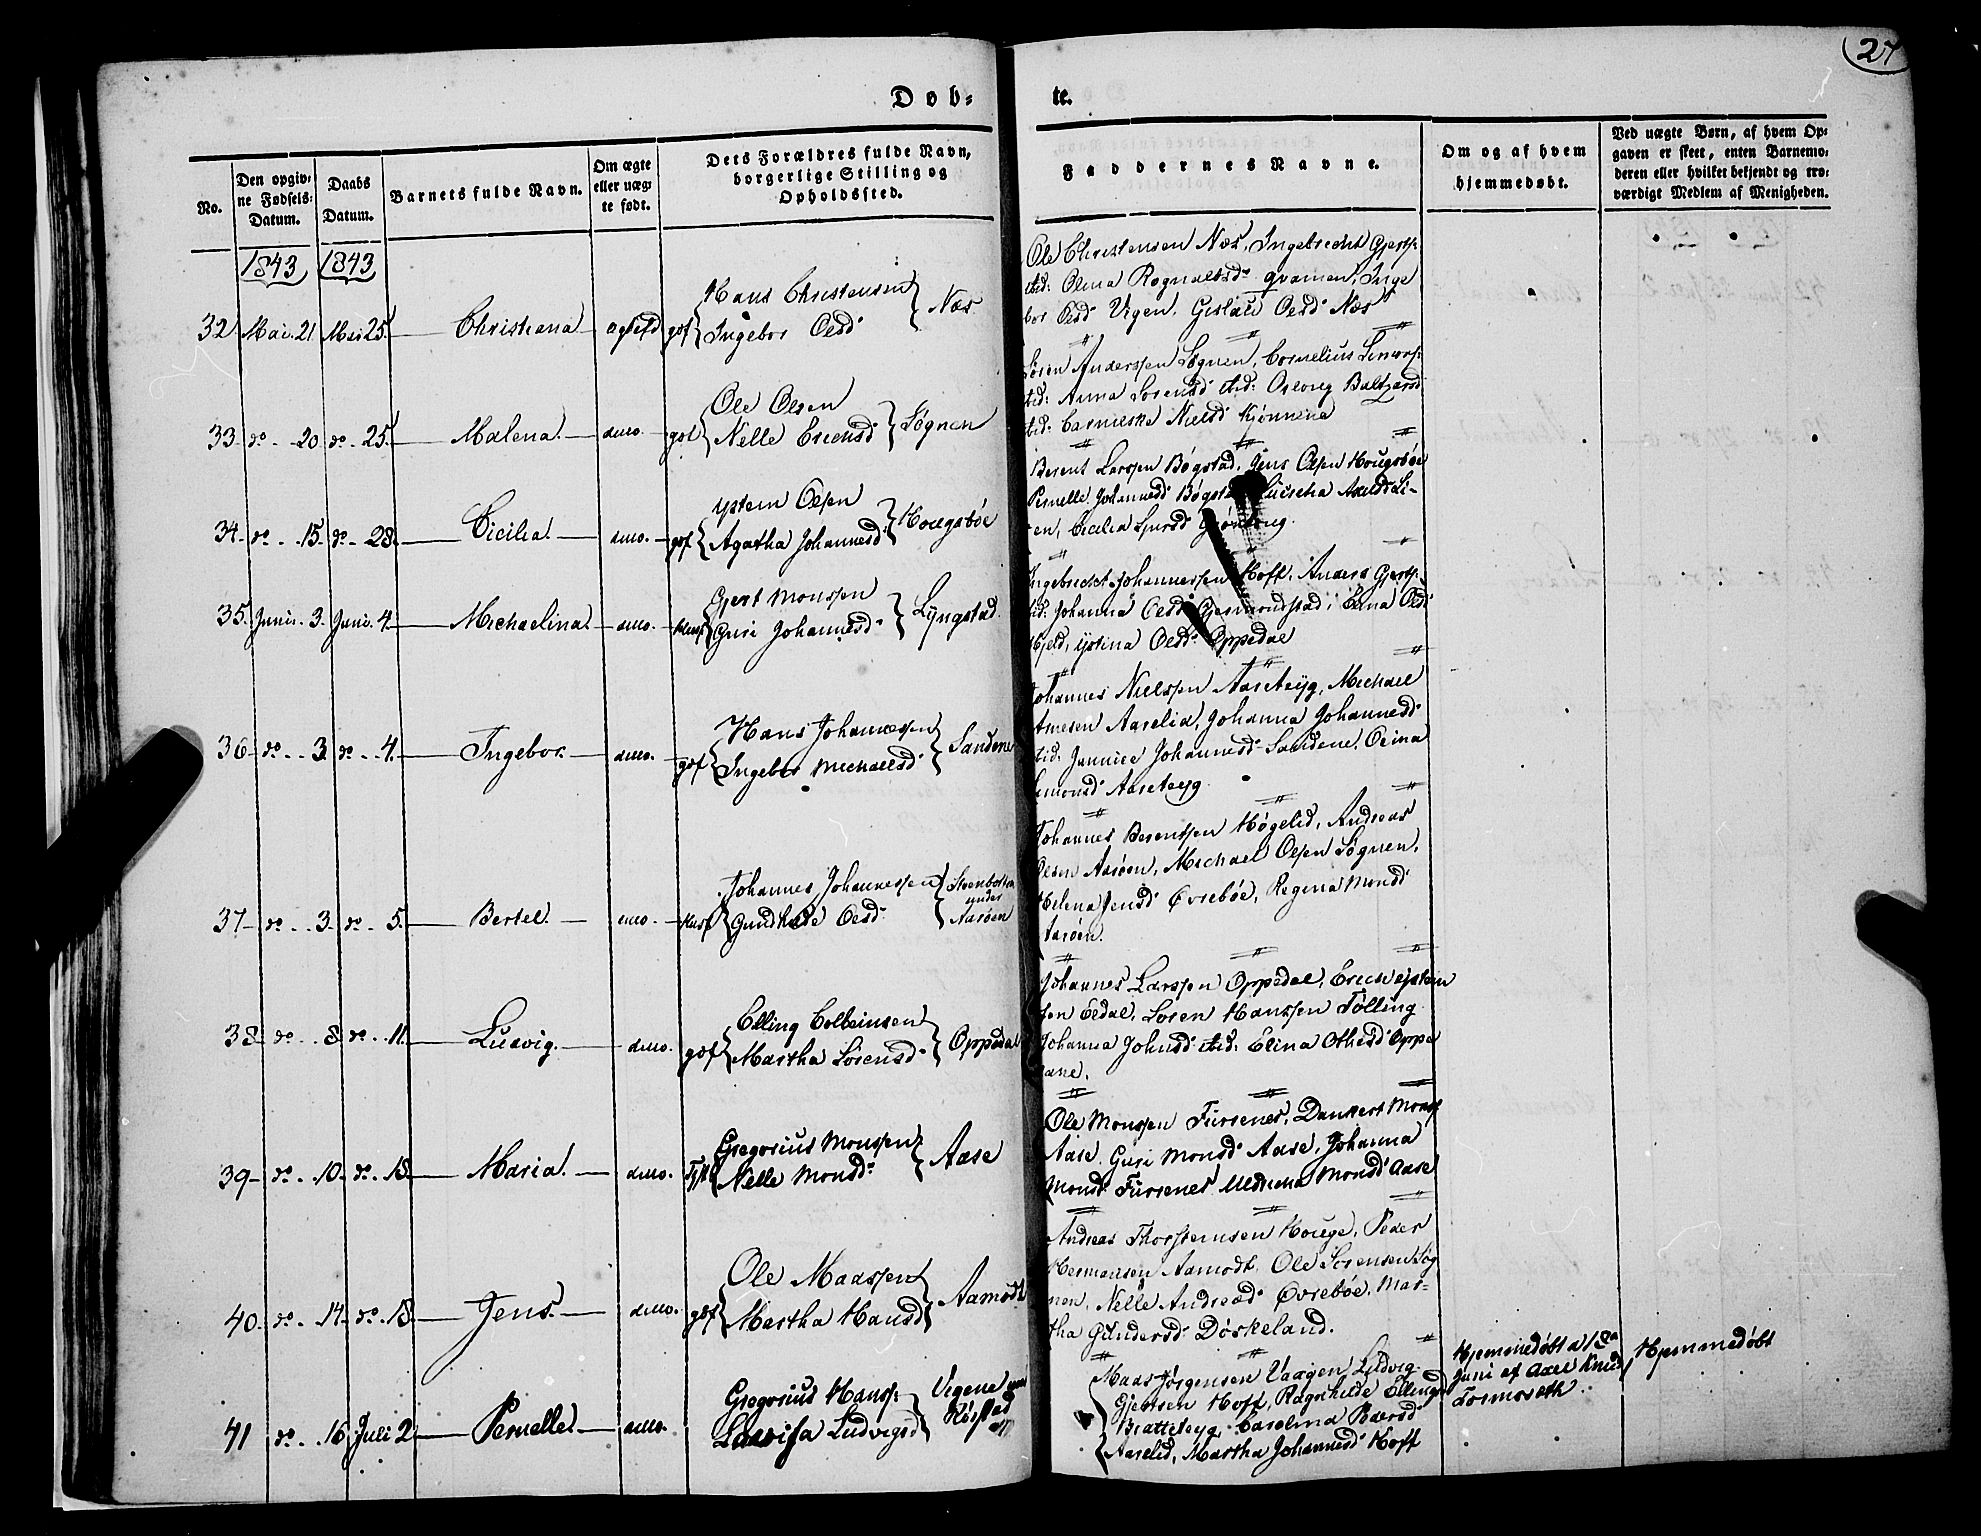 27
Døb-
te.
No.
Den opgiv-
ne Fødsels-
Datum.
Daabs
Datum.
Barnets fulde Navn.
Om ægte
eller uæg-
te født.
Dets Forældres fulde Navn,
borgerlige Stilling og
Opholdssted.
Faddernes Navne.
Om og af hvem
hjemmedøbt.
Ved uægte Børn, af hvem Op-
gaven er skeet, enten Barnemo-
deren eller hvilket bekjendt og tro-
værdigt Medlem af Menigheden.
1843 1843
32 Mai. 21 Mai 25 Christiana
Hans Christensen
Ingebor Olsd Næs
Ole Christensen Næs, Ingebrecht Gjerts.
ibid: Olina Rognaldsd. Qvamen, Inge
bor Olsd Vigen, Gislau Olsd Næs
33 do 20 do 25 Malena do gbf
Ole Olsen
Nelle Erichsd Søgnen
Søren Anderssen Søgnen, Cornelius
ibid: Anna Sørensd ibid: Baltzarsd
ibid: Nielsd
34 do 15 do 28 Cicilia do gbf
ystein Olsen
Agatha Johannesd Hougsbøe
Berent Larssen Bøgstad, Jens Olsen Hougsbøe
Pernelle Johannesd Axelsd Li-
en, Cicilia
35 Junii 3 Juni 4 Michaelina do
Gjert Monssen
Guri Johannesd Lyngstad
Ingebrecht Johannessen Hoff, Anders Gjerts.
ibid: Johanna Olsd Gjesmondstad, Elina Olsd
Hjeld, ystina Olsd Oppedal
36 do 3 do 4 Ingebor do gbf
Hans Johannessen
Ingebor Michaelsd Sandene
Johannes Nielssen Aaseteyg, Michael
Arnesen Aaselid, Johanna Johannesd
ibid: Johannesd Sandene, Olina
Simonsd Aaseteyg
37 do 3 do 5 Bertel do Husf
Johannes Johannessen
Gundhilde Olsd
under
Aasøen
Johannes Berentssen Høgelid, Andreas
Olsen Aasøen, Michael Olsen Søgnen,
Helena Jensd Øvrebøe, Regina Monsd
Aasøen.
38 do 8 do 11 Ludvig. do gbf
Elling Colbeinsen
Martha Sørensd Oppedal
Johannes Larssen Oppedal, Erich ystein
sen Eldal, Søren Hanssen Tølling
Johanna Johnsd ibid: Elina Othesd Oppe
dane.
39 do 10 do 18 Maria do
Gregorius Monssen
Nelle Monsd Aase
Ole Monssen Fursenes, Dankert Monss
Aase, Guri Monsd Aase, Johanna
Monsd Fursenes, Monsd Aase
40 do 14 do 18 Jens do gbf
Ole Maassen
Martha Hansd Aamodt
Andreas Thorsteinsen Houge, Peder
Hermansen Aamodt, Ole Sørensen Søg
nen, Nelle Andread Øvrebøe, Mar-
tha Gundersd Døskeland.
41 do 16 Juli 2 Pernelle do
Gregorius Hanss.
Lovisa Ludvigsd Vigene
Maas Jørgensen Vaagen, Ludvig
Gjertsen Hoff, Ragnhilde Ellings
Bratteteyg, Carolina Peersd
Aaselid, Martha Johannesd Hoff
Hjemmedøbt d 18de
Juni af Axel Knud
Hjemmedøbt